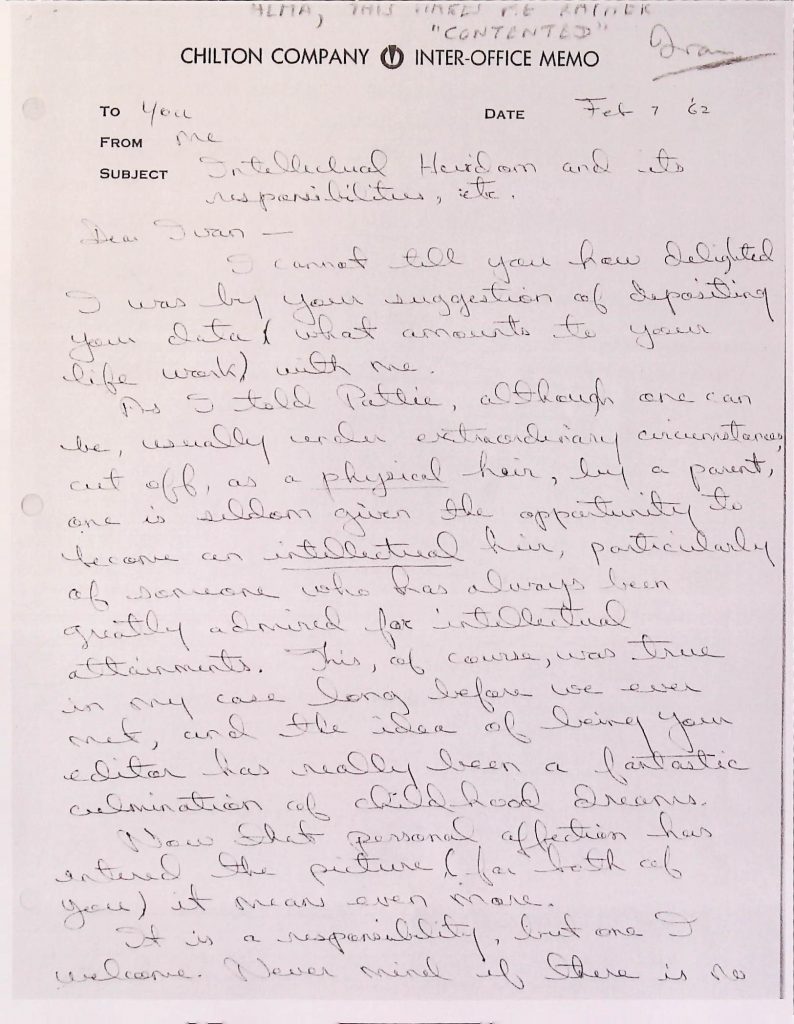 ALMA, THIS MAKES ME RATHER
"CONTENTED"
Ivan
CHILTON COMPANY INTER-OFFICE MEMO
TO You
DATE Feb 7 '62
FROM Me
SUBJECT Intellectual Heirdom and its
responsibilities, etc.
Dear Ivan —
I cannot tell you how delighted
I was by your suggestion of depositing
your data (what amounts to your
life work) with me.
As I told Pattie, although one can
be, usually under extraordinary circumstances,
cut off, as a physical heir, by a parent,
one is seldom given the opportunity to
become an intellectual heir, particularly
of someone who has always been
greatly admired for intellectual
attainments. This, of course, was true
in my case long before we ever
met, and the idea of being your
editor has really been a fantastic
culmination of childhood dreams.
Now that personal affection has
entered the picture (for both of
you) it means even more.
It is a responsibility, but one I
welcome. Never mind if there is no